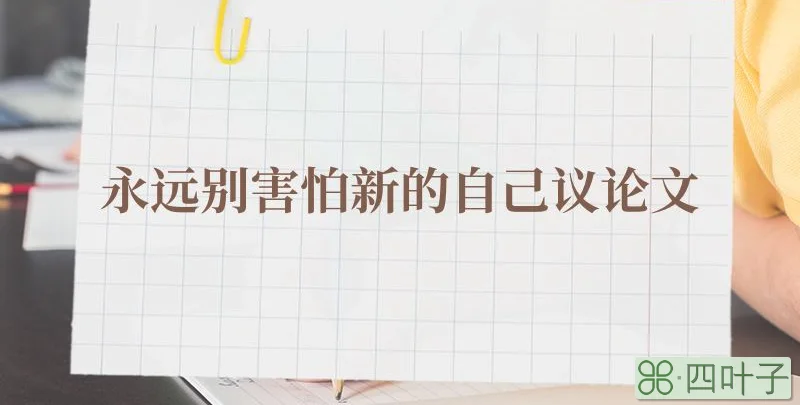 永远别害怕新的自己议论文
四叶子